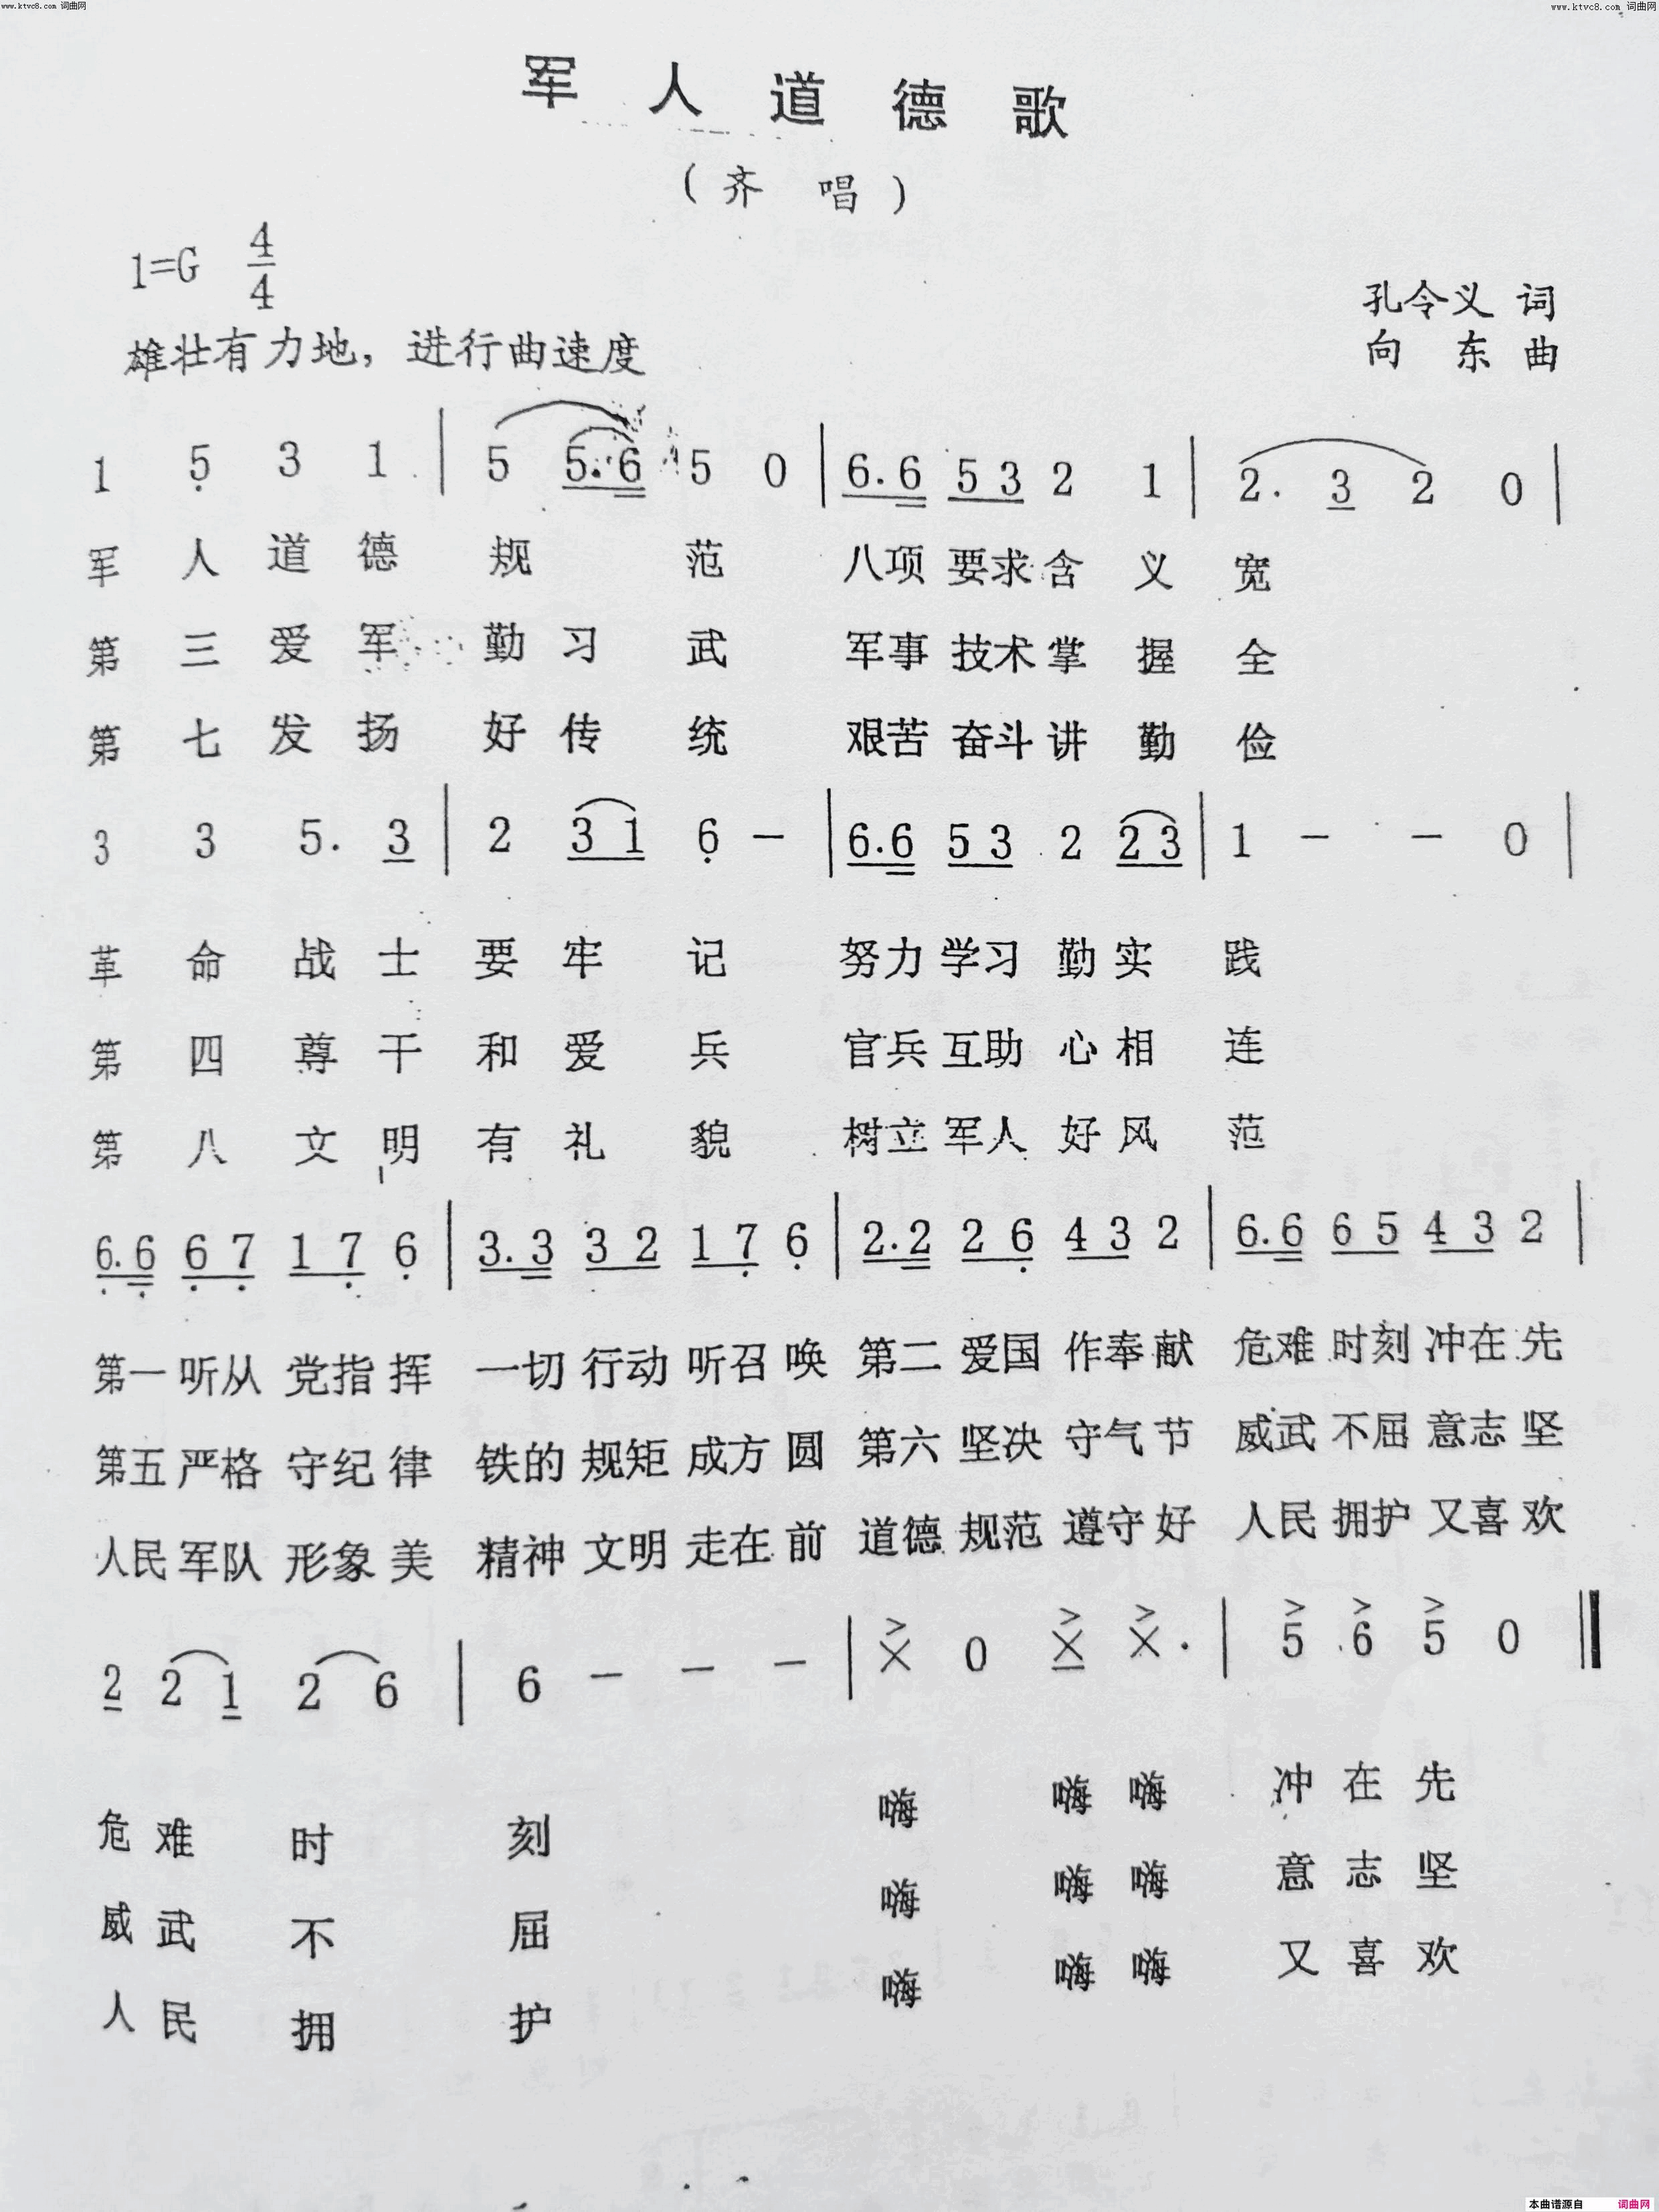 www.ktvc8.com 词曲网
www.ktvc8.com 词曲网
军人道德歌
(齐唱)
1=G 4/4
孔令义 词
雄壮有力地，进行曲速度
向东 曲
1 5̣ 3 1 | 5 5. 6 5 0 | 6. 6 5 3 2 1 | 2. 3 2 0 |
军人道德 规范 八项要求含义宽
第三爱军 勤习武 军事技术掌握全
第七发扬 好传统 艰苦奋斗讲勤俭
3 3 5. 3 | 2 3 1 6̣ - | 6. 6 5 3 2 2 3 | 1 - - 0 |
革命战士 要牢记 努力学习勤实践
第四尊干 和爱兵 官兵互助心相连
第八文明 有礼貌 树立军人好风范
6̣. 6̣ 6̣ 7̣ 1 7̣ 6̣ | 3. 3 3 2 1 7̣ 6̣ | 2. 2 2 6̣ 4 3 2 | 6. 6 6 5 4 3 2 |
第一听从党指挥 一切行动听召唤 第二爱国作奉献 危难时刻冲在先
第五严格守纪律 铁的规矩成方圆 第六坚决守气节 威武不屈意志坚
人民军队形象美 精神文明走在前 道德规范遵守好 人民拥护又喜欢
2 2 1 2 6 | 6 - - - | X 0 X X. | 5 6 5 0 ‖
危难时刻 嗨 嗨嗨 冲在先
威武不屈 嗨 嗨嗨 意志坚
人民拥护 嗨 嗨嗨 又喜欢
本曲谱源自 词曲网